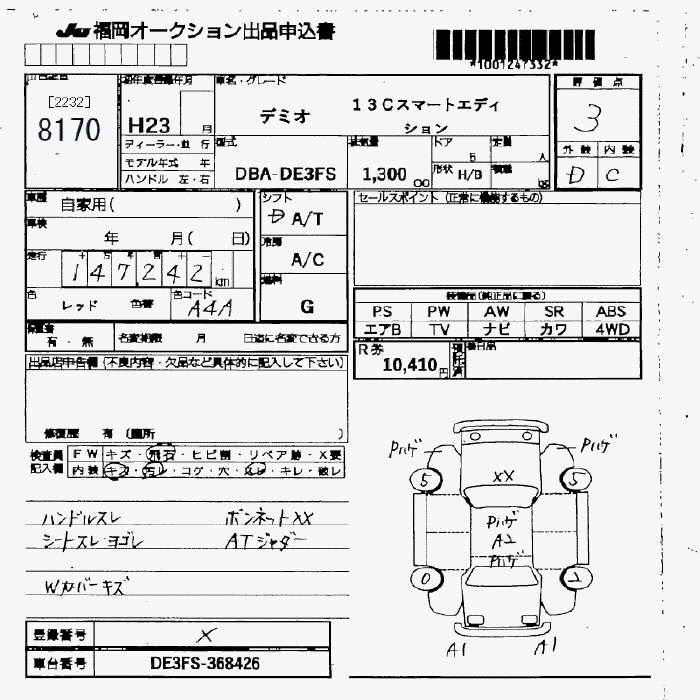 JU 福岡オークション出品申込書
*1001247332*
初年度登録年月 車名・グレード 評価点
[2232]
8170
H23 月
デミオ
13Cスマートエディション
3
ディーラー・並行
モデル年式 年
ハンドル 左・右
型式
DBA-DE3FS
排気量
1,300
ドア
5
定員
人
形状 H/B
積載
外装 内装
D C
車歴 自家用( )
車検 年 月( 日)
走行 十 万 千 百 十
147,242 km
色 レッド 色替
色コード A4A
シフト
D A/T
冷房
A/C
燃料
G
セールスポイント (正常に機能するもの)
装備品(純正品に限る)
PS PW AW SR ABS
エアB TV ナビ カワ 4WD
有・無 名変期限 月 日迄に名変できる方
R券
10,410円
預託済
後日品
出品店申告欄(不良内容・欠品など具体的に記入して下さい)
修復歴 有 (箇所 )
検査員記入欄
FW キズ・飛石・ヒビ割・リペア跡・X要
内装 キズ・汚レ・コゲ・穴・スレ・キレ・破レ
ハンドルスレ ボンネットXX
シートスレ ヨゴレ ATジャダー
Wカバーキズ
登録番号 X
車台番号 DE3FS-368426
Pハゲ Pハゲ
5 XX 5
Pハゲ
A2
Pハゲ
0 2
A1 A1